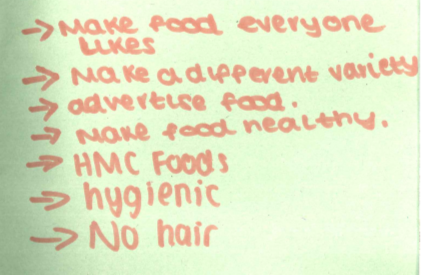 → Make food everyone
likes
→ Make a different variety
→ advertise food.
→ Make food healthy.
→ HMC Foods
→ hygienic
→ No hair